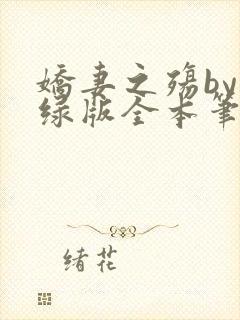 嬌妻之殤by
绿版全本筆
绪花